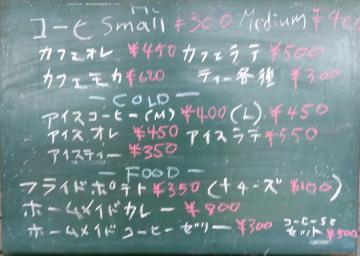 コーヒ Small ¥300 Medium ¥40
カフェオレ ¥450 カフェラテ ¥500
カフェモカ ¥600 ティー各種 ¥300
— COLD —
アイスコーヒー(M) ¥400 (L) ¥450
アイスオレ ¥450 アイスラテ ¥550
アイスティー ¥350
— FOOD —
フライドポテト ¥350 (+チーズ ¥100)
ホームメイドカレー ¥800
ホームメイドコーヒーゼリー ¥300 コーヒーSと
セット ¥500